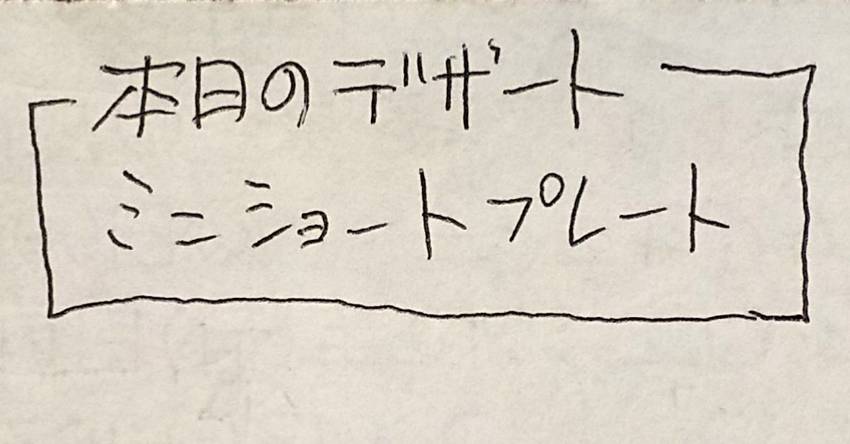 本日のデザート
ミニショートプレート